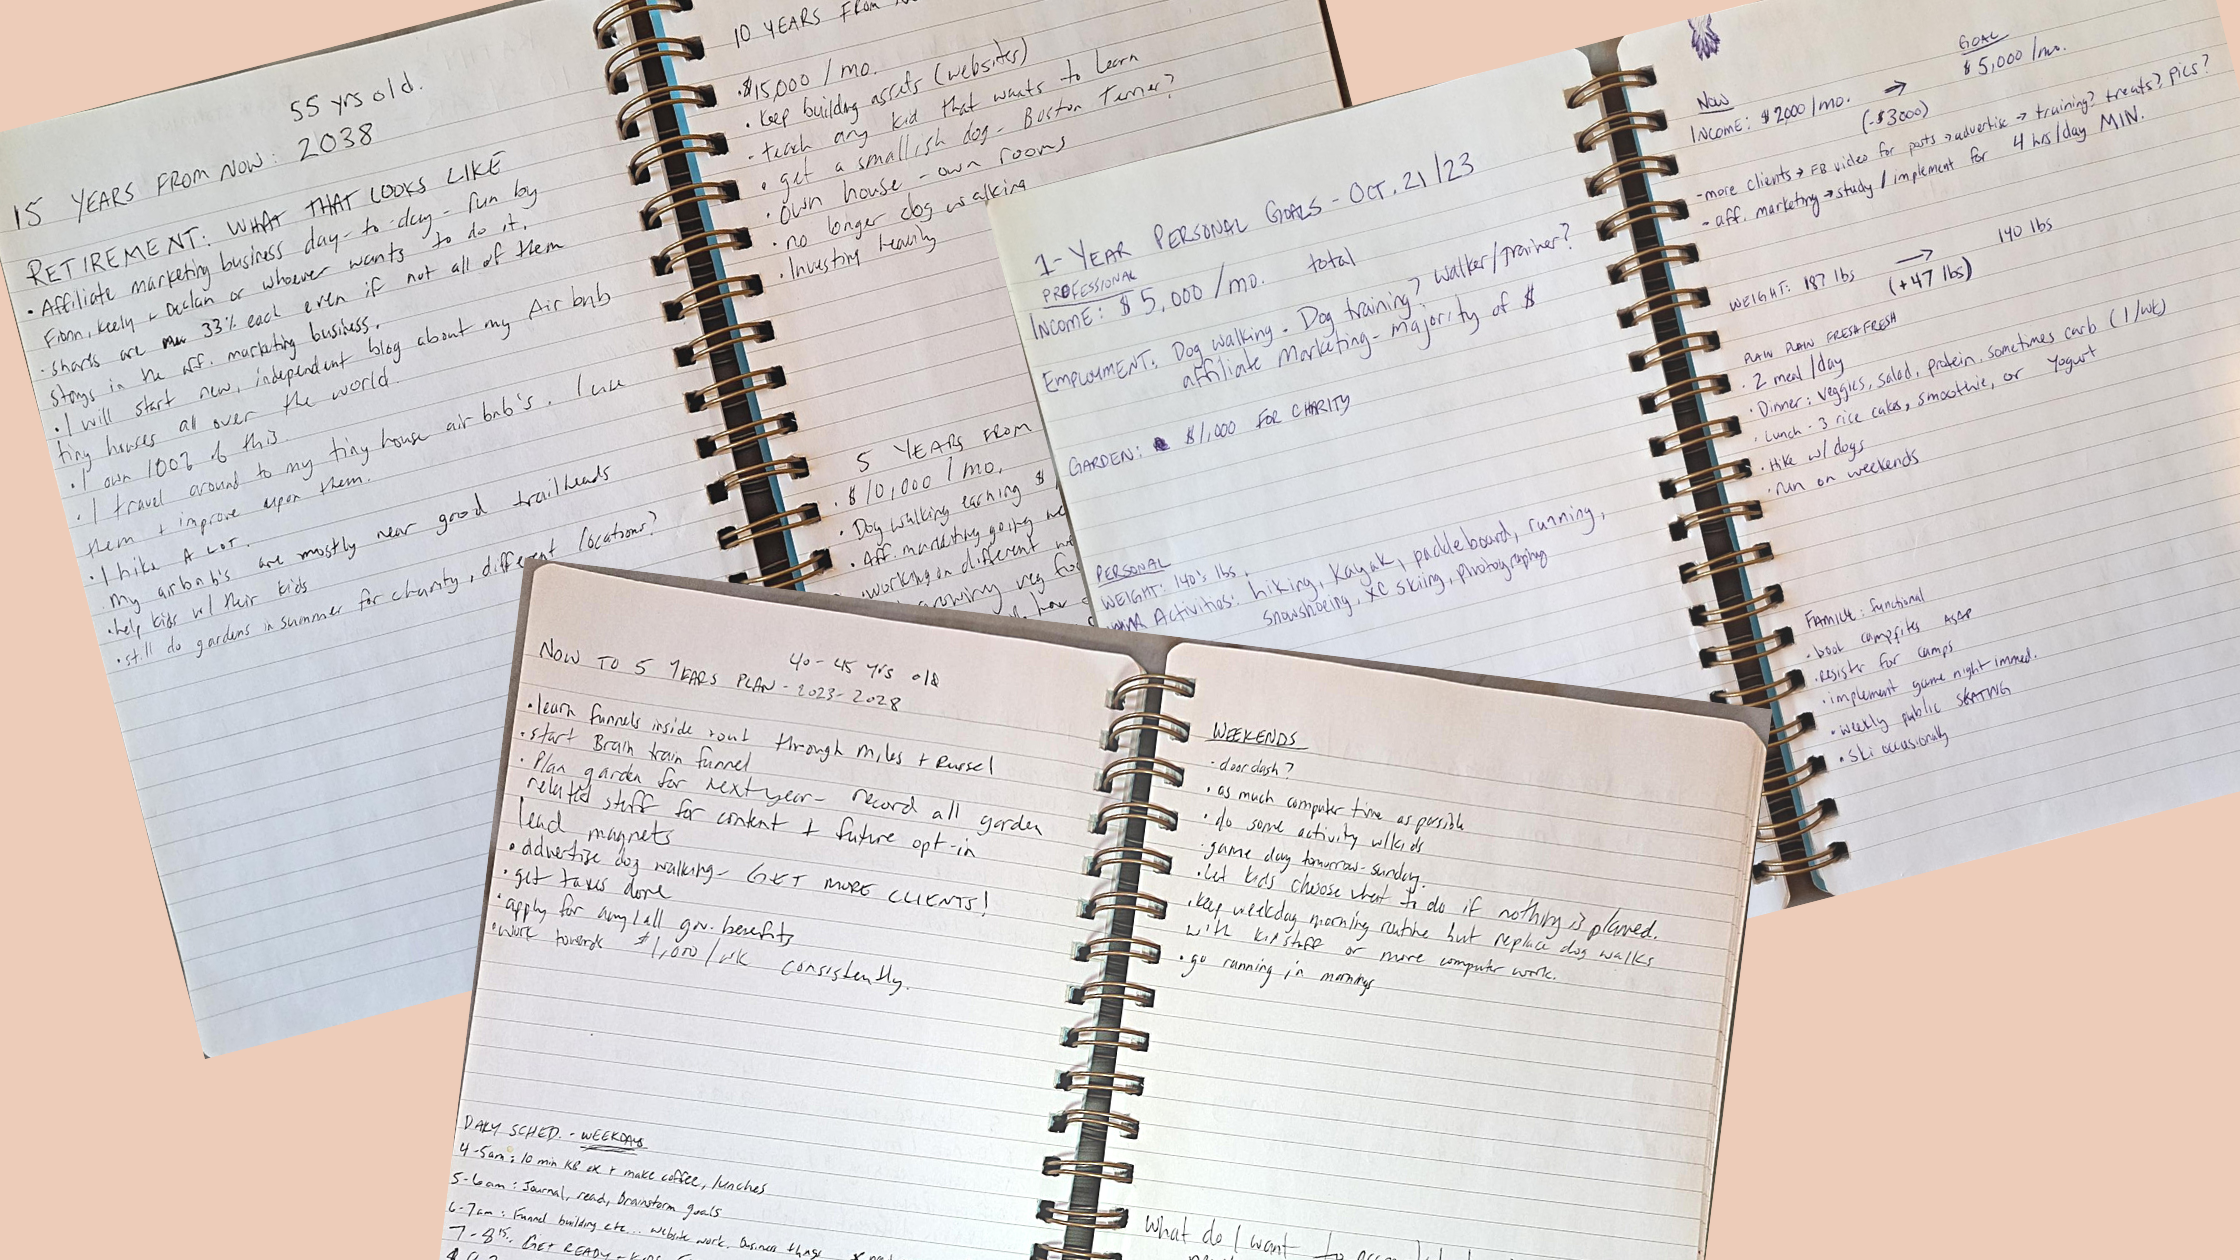 55 yrs old.
15 YEARS FROM NOW: 2038
RETIREMENT: WHAT THAT LOOKS LIKE
• Affiliate marketing business day-to-day - run by
Fionn, Keely + Declan or whoever wants to do it.
• shares are 33% each even if not all of them
stays in the aff. marketing business.
• I will start new, independent blog about my Air bnb
tiny houses all over the world.
• I own 100% of this.
• I travel around to my tiny house air bnb's. I use
them + improve upon them.
• I hike A LOT.
My airbnb's are mostly near good trailheads
• help kids w/ their kids
• still do gardens in summer for charity, different locations?
10 YEARS FROM
• $15,000 / mo.
• Keep building assets (websites)
- teach any kid that wants to learn
• get a smallish dog - Boston Terrier?
• own house - own rooms
• no longer dog walking
• Investing heavily
5 YEARS FROM
• $10,000 / mo.
• Dog walking earning $
• Aff. marketing going
working on different
growing veg
1-YEAR PERSONAL GOALS - OCT. 21/23
PROFESSIONAL
INCOME: $5,000 /mo. total
EMPLOYMENT: Dog walking. Dog training? Walker/Trainer?
affiliate marketing - majority of $
GARDEN: $1,000 FOR CHARITY
PERSONAL
WEIGHT: 140's lbs
Activities: hiking, kayak, paddleboard, running,
snowshoeing, XC skiing, photographing
NOW
GOAL
INCOME: $2000/mo. → $5,000/mo.
(-$3000)
- more clients → FB video for posts → advertise → training? treats? pics?
- aff. marketing → study / implement for 4 hrs/day MIN.
WEIGHT: 187 lbs → 140 lbs
(+47 lbs)
PLAN FRESH FRESH
• 2 meal/day
• Dinner: veggies, salad, protein, sometimes carb (1/wk)
• Lunch - 3 rice cakes, smoothie, or yogurt
• Hike w/ dogs
• run on weekends
FAMILY: functional
• book campsites ASAP
• register for camps
• implement game night immed.
• weekly public SKATING
• Ski occasionally
40-45 yrs old
NOW TO 5 YEARS PLAN - 2023-2028
• learn funnels inside + out through Miles + Russel
• start Brain train funnel
• Plan garden for next year - record all garden
related stuff for content + future opt-in
lead magnets
• advertise dog walking - GET MORE CLIENTS!
• get taxes done
• apply for any/all gov. benefits
• work towards $1,000/wk consistently.
DAILY SCHED. - WEEKDAYS
4-5am: 10 min KB ex + make coffee, lunches
5-6am: Journal, read, brainstorm goals
6-7am: Funnel building etc... website work, business things
7-8:15: GET READY - KIDS
WEEKENDS
• door dash?
• as much computer time as possible
• do some activity w/kids
• game day tomorrow - sunday.
• Let kids choose what to do if nothing is planned.
• Keep weekday morning routine but replace dog walks
with kid stuff or more computer work.
• go running in mornings
What do I want to